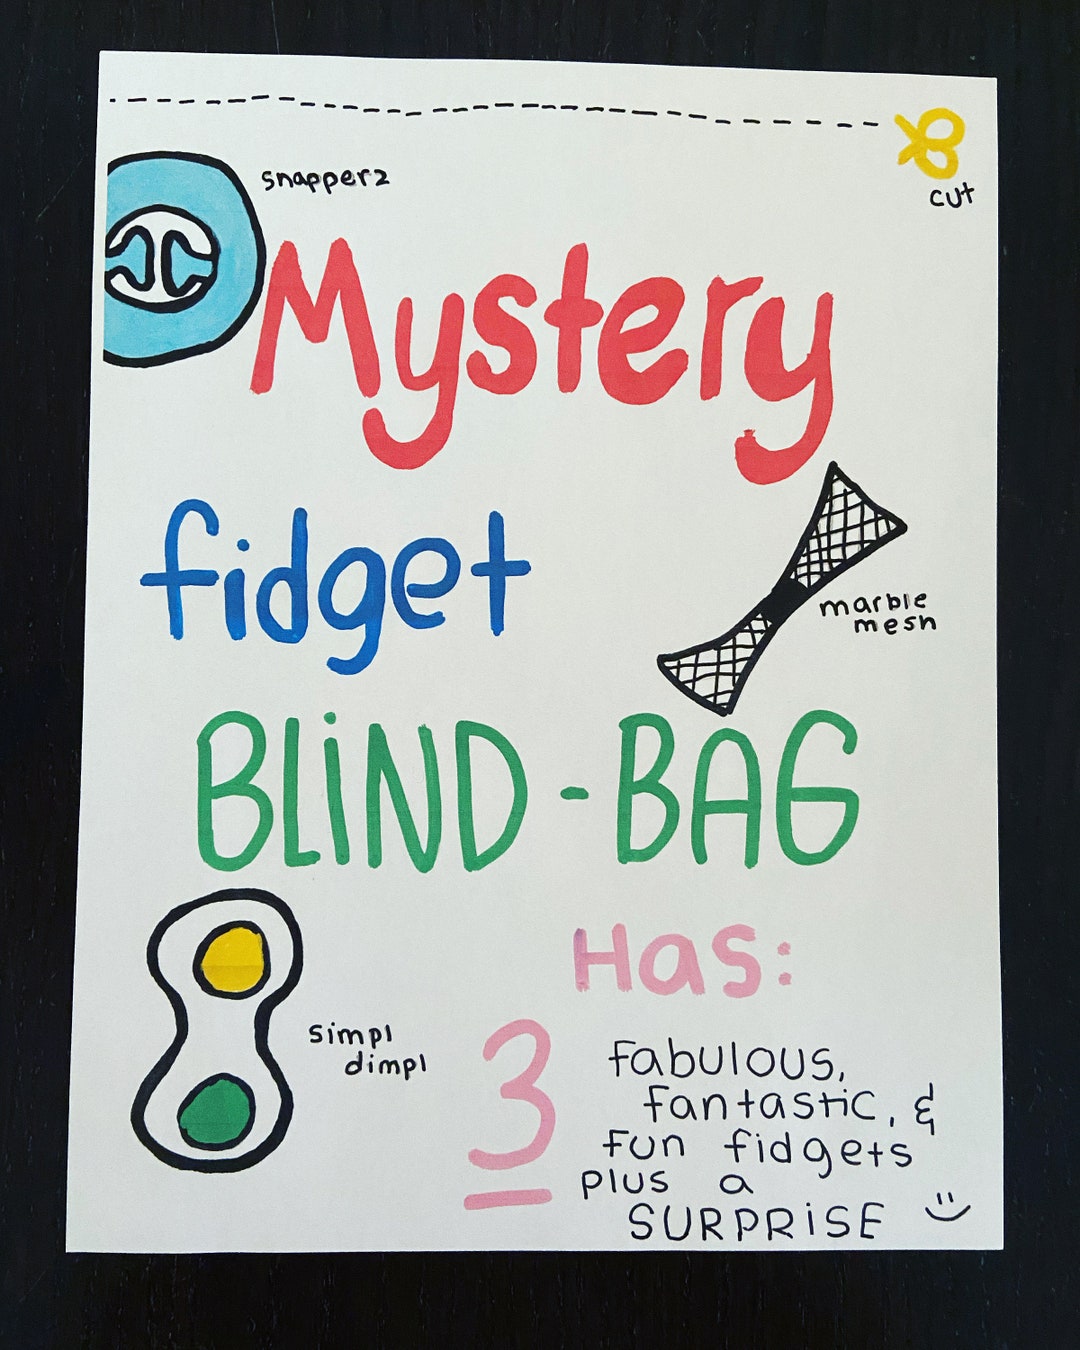 cut
snapperz
Mystery
fidget
marble
mesh
BLiND-BAG
Has:
simpl
dimpl
3
fabulous,
fantastic, &
fun fidgets
plus a
SURPRiSE